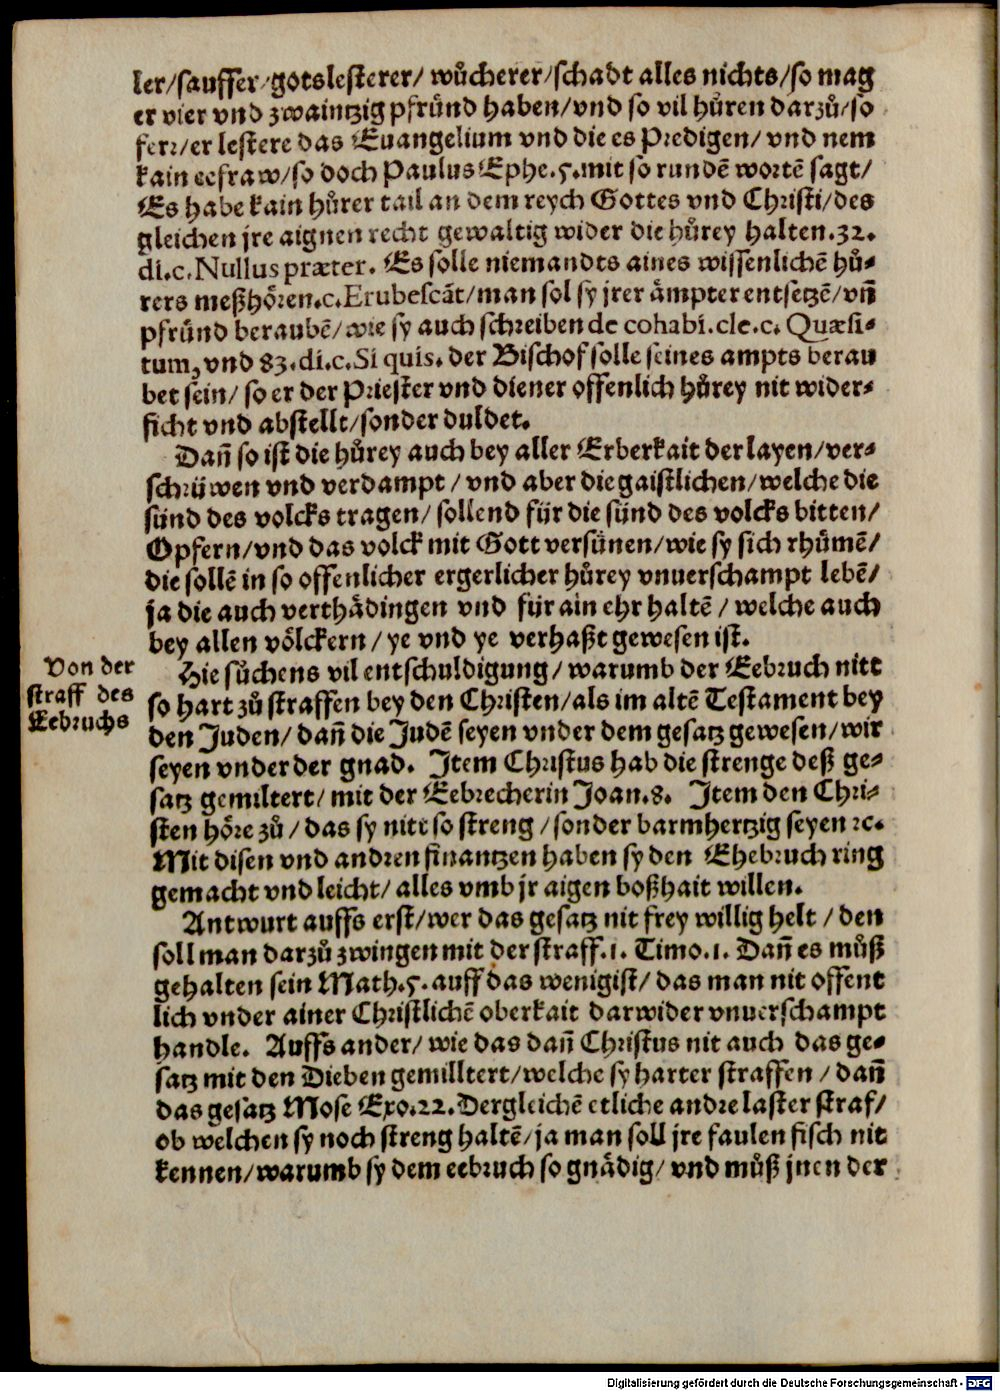 ler/sauffer/gotslesterer/ wůcherer/schadt alles nichts/so mag
er vier vnd zwaintzig pfründ haben/vnd so vil hůren darzů/so
ferr/er lestere das Euangelium vnd die es Predigen/ vnd nem
kain eefraw/so doch Paulus Ephe.5.mit so rundẽ wortẽ sagt/
Es habe kain hůrer tail an dem reych Gottes vnd Christi/des
gleichen jre aignen recht gewaltig wider die hůrey halten.32.
di.c.Nullus præter. Es solle niemandts aines wissenlichẽ hů-
rers meßhören.c.Erubescãt/man sol sy jrer ämpter entsetzẽ/vñ
pfründ beraubẽ/wie sy auch schreiben de cohabi.cle.c. Quæsi-
tum, vnd 83.di.c.Si quis. der Bischof solle seines ampts berau
bet sein/ so er der Priester vnd diener offenlich hůrey nit wider-
ficht vnd abstellt/sonder duldet.
Dañ so ist die hůrey auch bey aller Erberkait der layen/ver-
schrüwen vnd verdampt / vnd aber die gaistlichen/welche die
sünd des volcks tragen/ sollend für die sünd des volcks bitten/
Opfern/vnd das volck mit Gott versünen/wie sy sich rhůmẽ/
die sollẽ in so offenlicher ergerlicher hůrey vnuerschampt lebẽ/
ja die auch verthädingen vnd für ain ehr haltẽ / welche auch
bey allen völckern / ye vnd ye verhaßt gewesen ist.
Von der
straff des
Eebruchs
Hie sůchens vil entschuldigung/ warumb der Eebruch nitt
so hart zů straffen bey den Christen/als im altẽ Testament bey
den Juden/ dañ die Judẽ seyen vnder dem gesatz gewesen/wir
seyen vnder der gnad. Item Christus hab die strenge deß ge-
satz gemiltert/ mit der Eebrecherin Joan.8. Item den Chri-
sten höre zů / das sy nitt so streng /sonder barmhertzig seyen ꝛc.
Mit disen vnd andren finantzen haben sy den Ehebruch ring
gemacht vnd leicht/ alles vmb jr aigen boßhait willen.
Antwurt auffs erst/wer das gesatz nit frey willig helt / den
soll man darzů zwingen mit der straff.1. Timo.1. Dañ es můß
gehalten sein Math.5.auff das wenigist/ das man nit offent
lich vnder ainer Christlichẽ oberkait darwider vnuerschampt
handle. Auffs ander/ wie das dañ Christus nit auch das ge-
satz mit den Dieben gemilltert/welche sy harter straffen / dañ
das gesatz Mose Exo.22.Dergleichẽ etliche andre laster straf/
ob welchen sy noch streng haltẽ/ja man soll jre faulen fisch nit
kennen/warumb sy dem eebruch so gnädig/ vnd můß jnen der
Digitalisierung gefördert durch die Deutsche Forschungsgemeinschaft - DFG